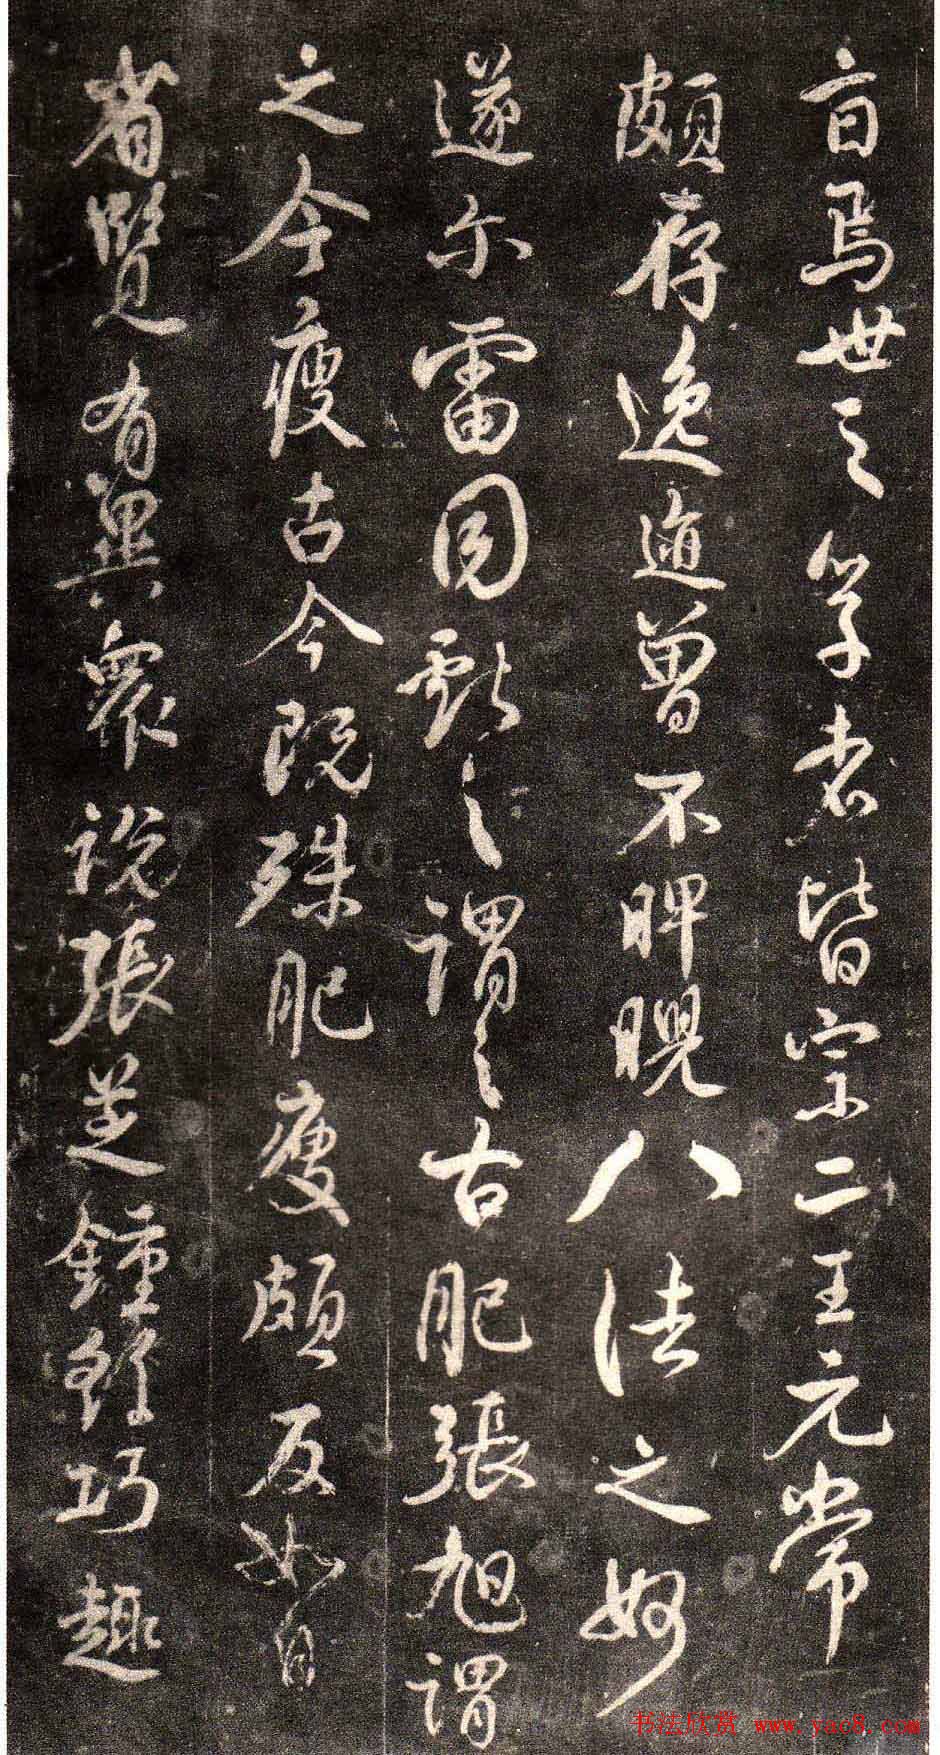 焉世之學者皆宗二王元常
頗存逸迹曾不睥睨八法之妙
遂尔雷同獻之謂之古肥張旭謂
之今瘦古今既殊肥瘦頗反如自
省覽有異衆説張芝鍾繇巧趣
书法欣赏 www.yac8.com